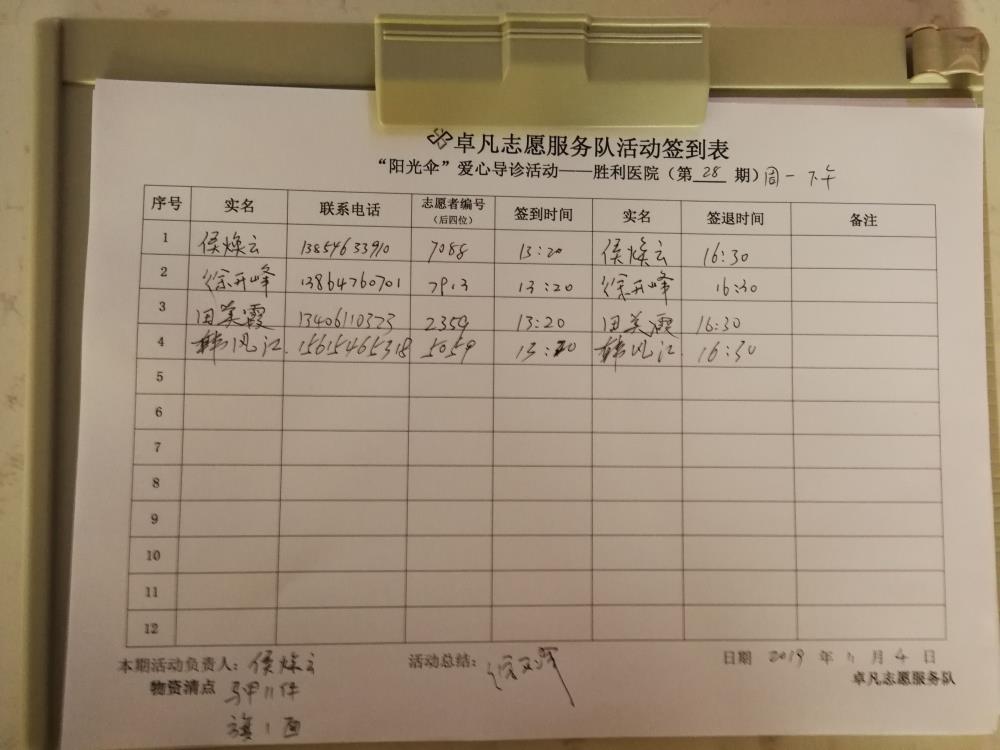 卓凡志愿服务队活动签到表
“阳光伞”爱心导诊活动——胜利医院（第 28 期）周一下午
序号 实名 联系电话 志愿者编号（后四位） 签到时间 实名 签退时间 备注
1 侯焕云 13854633910 7088 13:20 侯焕云 16:30
2 徐开峰 13864760701 7913 13:20 徐开峰 16:30
3 田美霞 13406110323 2359 13:20 田美霞 16:30
4 韩风江 15615465318 5059 13:20 韩风江 16:30
5
6
7
8
9
10
11
12
本期活动负责人：侯焕云 活动总结： 日期 2019 年 11 月 4 日
物资清点 马甲11件 卓凡志愿服务队
旗1面